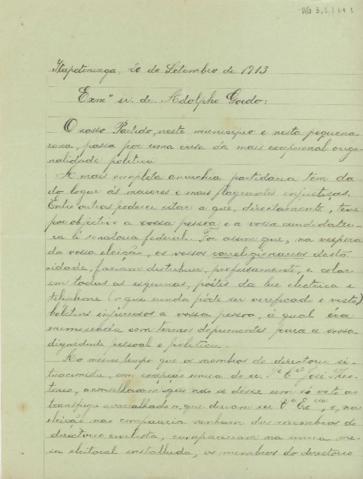 Itapetininga, 20 de Setembro de 1913
Exmo sr. dr. Adolpho Gordo:
O nosso Partido, neste municipio e nesta pequena
zona, passa por uma crise da mais excepcional origi-
nalidade politica
A mais completa anarchia partidaria tem da-
do logar ás maiores e mais flagrantes injustiças.
Entre outras poderei citar a que, directamente, teve
por objectivo a vossa pessoa e a vossa candidatu-
ra á senatoria federal. Foi assim que, na vespera
da vossa eleição, os vossos correligionarios desta
cidade, faziam distribuir, profusamente, e collar
em todas as esquinas, postes da luz electrica e
telephone (o que ainda póde ser verificado e visto)
boletins injuriosos a vossa pessoa, á qual era
com termos deprimentes para a vossa
dignidade pessoal e politica.
Ao mesmo tempo que os membros do directorio si-
tuacionista,
que não se désse um só voto ao
que diziam ser V. Exa, e, na
eleição não comparecia nenhum dos membros do
directorio compareceram na unica me-
sa eleitoral installada, os membros do directorio